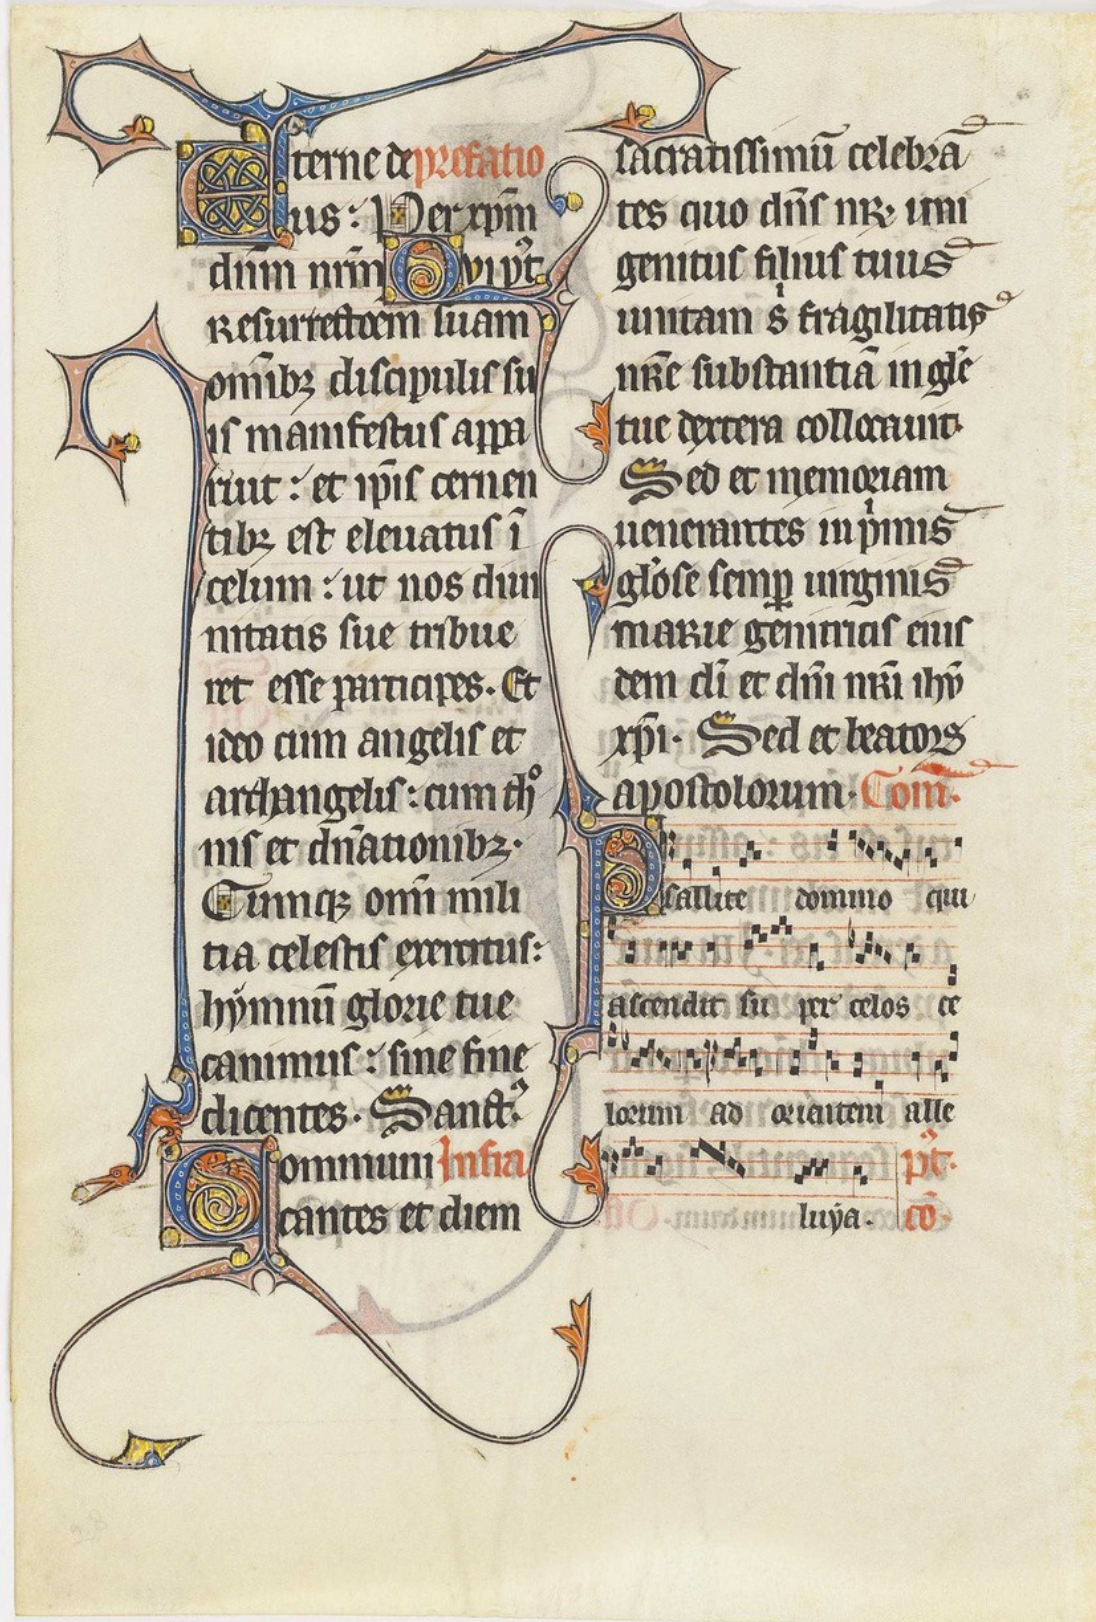 Eterne de prefatio
us: Per xp̄m
dn̄m nr̄m Qvi pꝰt
resurrectōem suam
om̄ibꝫ discipulis su
is manifestus appa
ruit: et ip̄is cernen
tibꝫ est eleuatus ī
celum: ut nos diui
nitatis sue tribue
ret esse participes. Et
ideo cum angelis et
archangelis: cum thͦ
nis et dn̄ationibꝫ.
Cumqꝫ om̄i mili
tia celestis exercitus:
hẏmnū glorie tue
canimus: sine fine
dicentes. Sanctꝰ
Communi Infra
cantes et diem
sacratissimū celebrā
tes quo dn̄s nr̄ uni
genitus filius tuus
unitam sͥ fragilitatis
nr̄e substantiā in gl̄e
tue dextera collocauit.
Sed et memoriam
uenerantes in pͥmis
gl̄ose semꝑ uirginis
marie genitricis eius
dem di̅ et dn̄i nr̄i ihū
xp̄i. Sed et beatoꝝ
apostolorum. Com̄.
Psallite domino qui
ascendit su per celos ce
lorum ad orientem alle
pꝰt.
luẏa. cō.